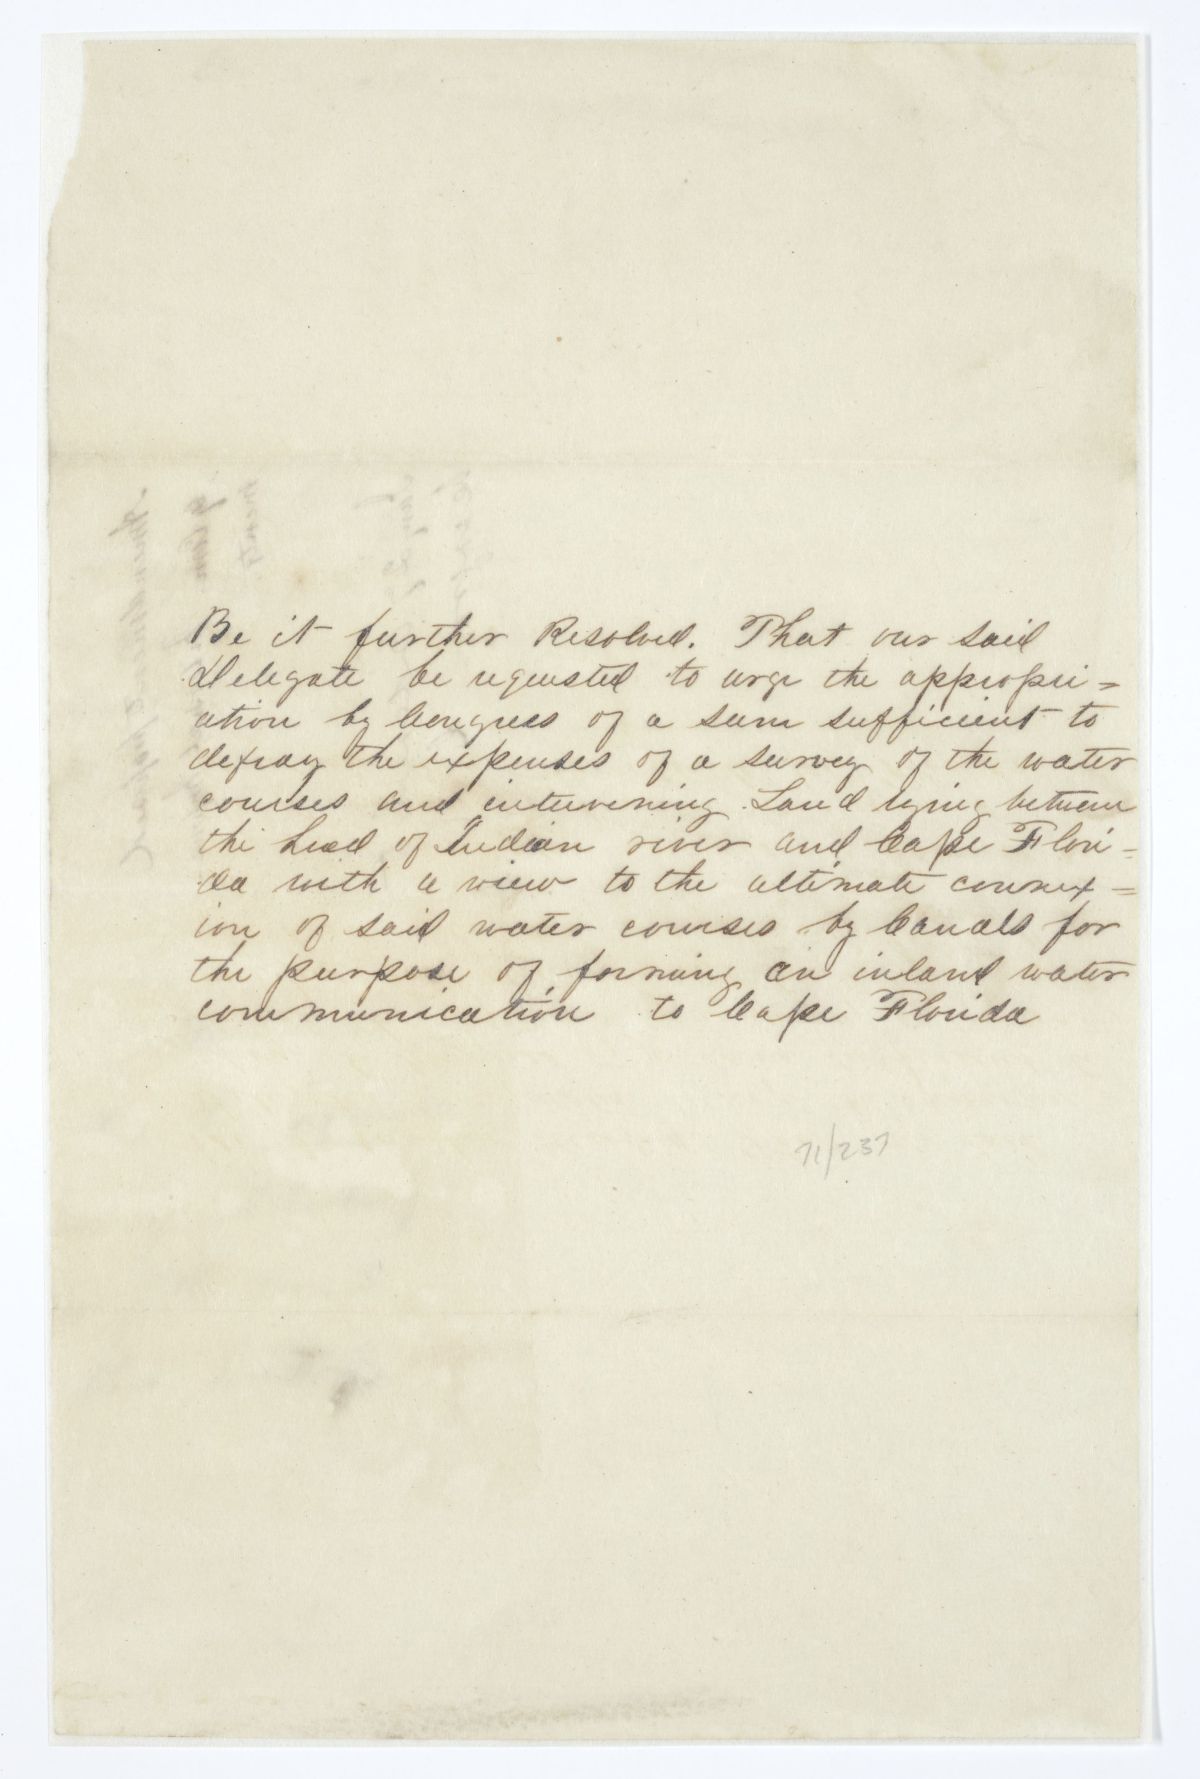 Be it further Resolved. That our said
Delegate be requested to urge the appropri=
ation by Congress of a sum sufficient to
defray the expenses of a survey of the water
courses and intervening Land lying between
the head of Indian river and Cape Flori=
da with a view to the ultimate connex=
ion of said water courses by Canals for
the purpose of forming an inland water
communication to Cape Florida
71/237